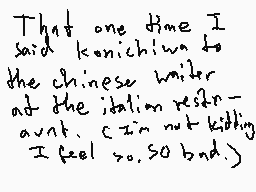 That one time I
said konichiwa to
the chinese waiter
at the italian restr-
aunt. (I'm not kidding
I feel so, SO bad.)